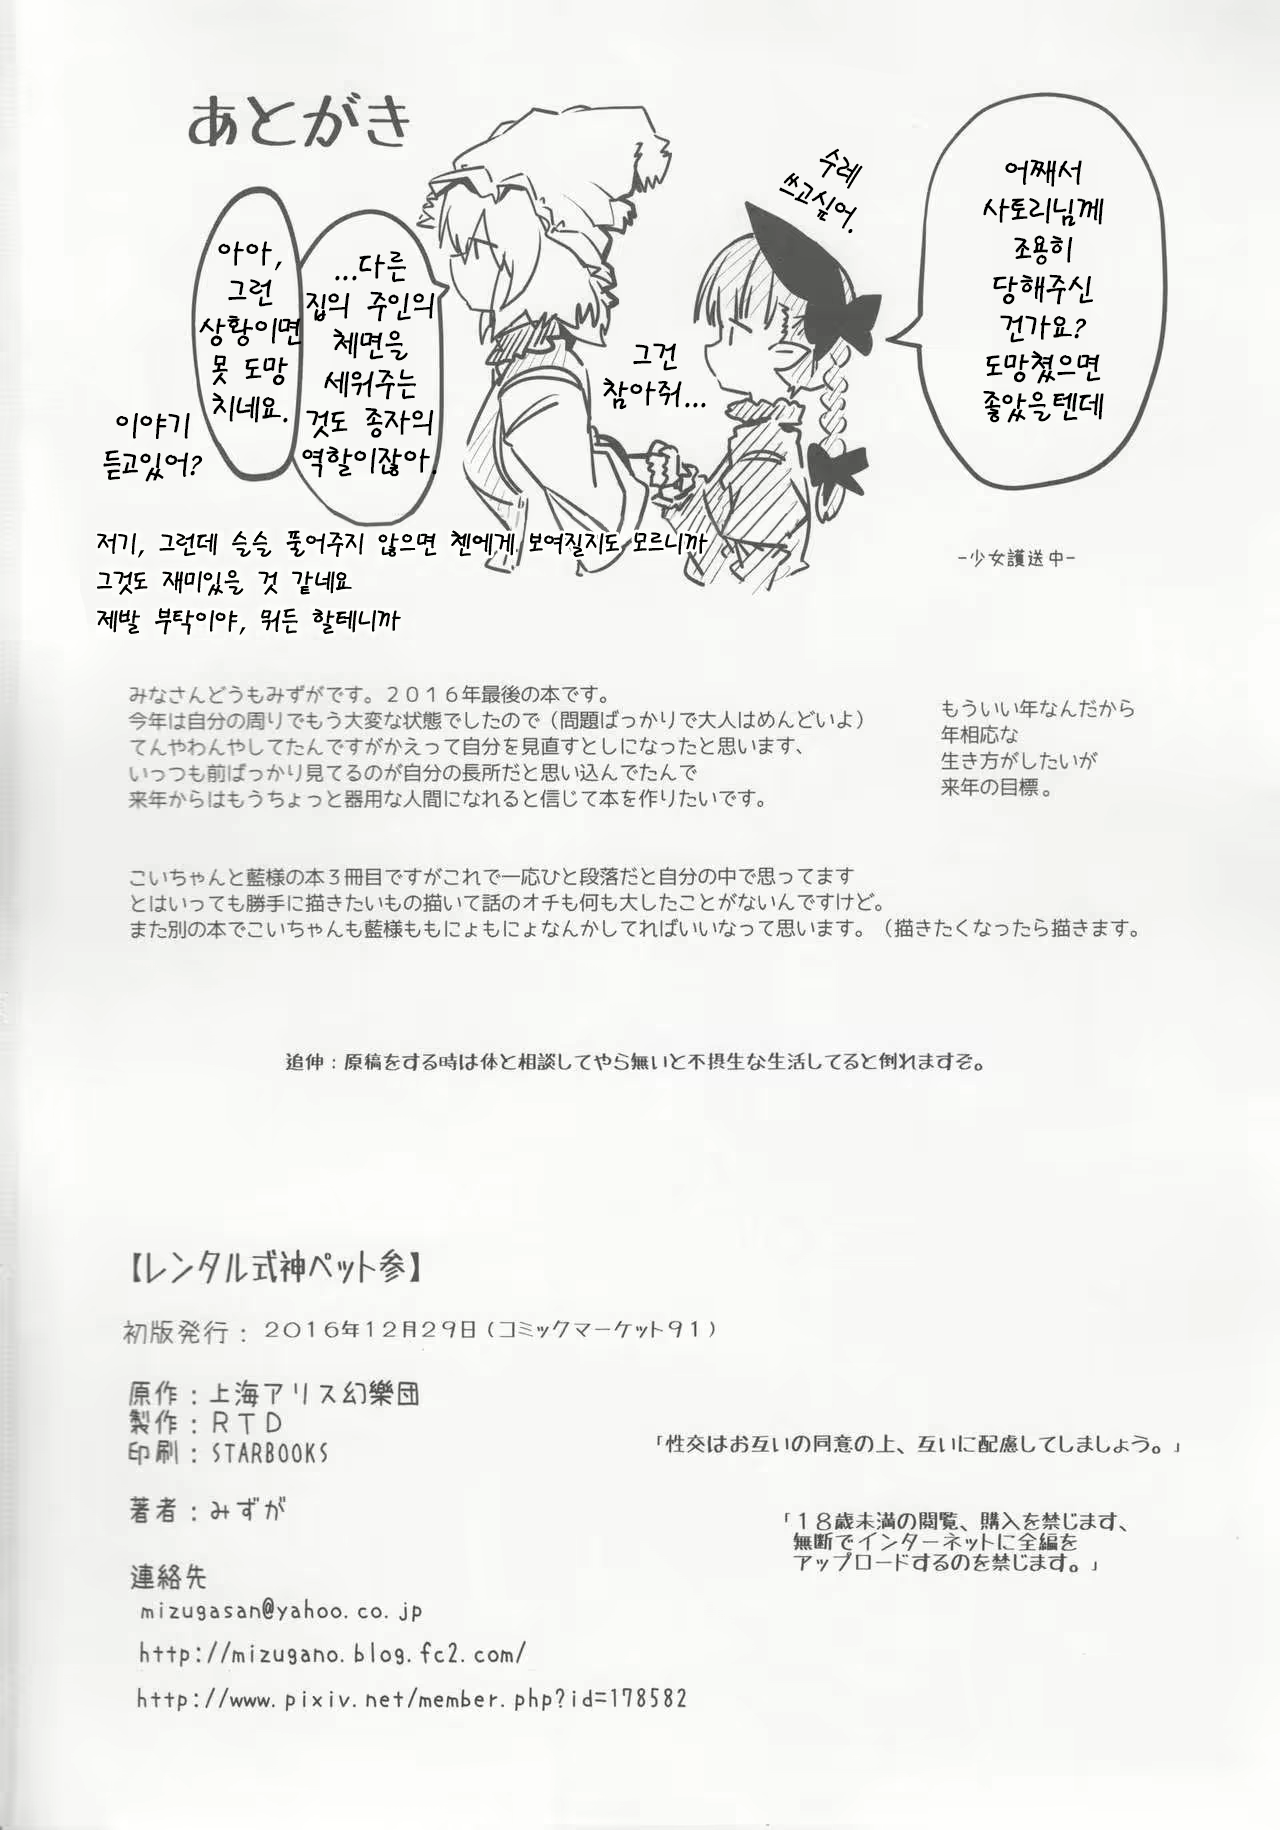 あとがき
어째서
사토리님께
조용히
당해주신
건가요?
도망쳤으면
좋았을텐데
수레
쓰고싶어.
그건
참아줘...
...다른
집의 주인의
체면을
세워주는
것도 종자의
역할이잖아.
아아,
그런
상황이면
못 도망
치네요.
이야기
듣고있어?
저기, 그런데 슬슬 풀어주지 않으면 첸에게 보여질지도 모르니까
그것도 재미있을 것 같네요
제발 부탁이야, 뭐든 할테니까
-少女護送中-
みなさんどうもみずがです。２０１６年最後の本です。
今年は自分の周りでもう大変な状態でしたので（問題ばっかりで大人はめんどいよ）
てんやわんやしてたんですがかえって自分を見直すとしになったと思います、
いっつも前ばっかり見てるのが自分の長所だと思い込んでたんで
来年からはもうちょっと器用な人間になれると信じて本を作りたいです。
もういい年なんだから
年相応な
生き方がしたいが
来年の目標。
こいちゃんと藍様の本３冊目ですがこれで一応ひと段落だと自分の中で思ってます
とはいっても勝手に描きたいもの描いて話のオチも何も大したことがないんですけど。
また別の本でこいちゃんも藍様ももにょもにょなんかしてればいいなって思います。（描きたくなったら描きます。
追伸：原稿をする時は体と相談してやら無いと不摂生な生活してると倒れますぞ。
【レンタル式神ペット参】
初版発行：２０１６年１２月２９日（コミックマーケット９１）
原作：上海アリス幻樂団
製作：ＲＴＤ
印刷：STARBOOKS
「性交はお互いの同意の上、互いに配慮してしましょう。」
著者：みずが
「１８歳未満の閲覧、購入を禁じます、
無断でインターネットに全編を
アップロードするのを禁じます。」
連絡先
mizugasan@yahoo.co.jp
http://mizugano.blog.fc2.com/
http://www.pixiv.net/member.php?id=178582